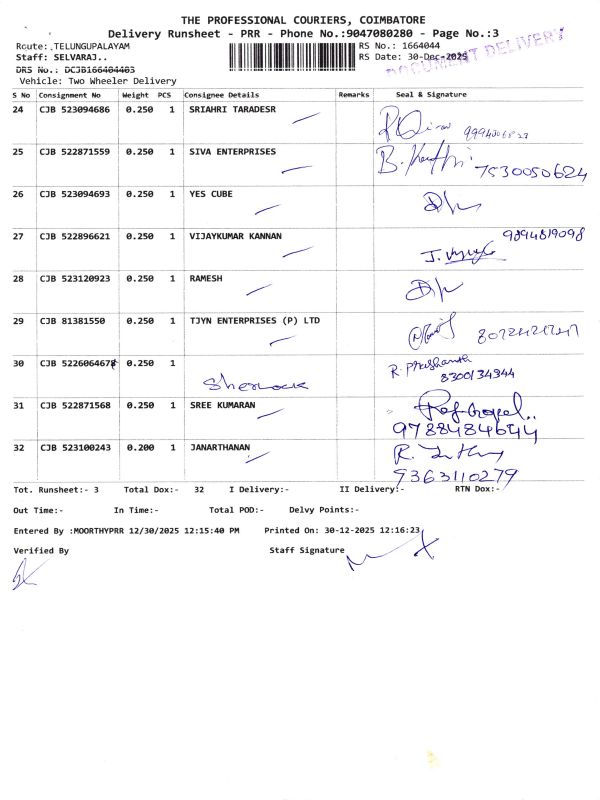 THE PROFESSIONAL COURIERS, COIMBATORE
Delivery Runsheet - PRR - Phone No.:9047080280 - Page No.:3
Route:.TELUNGUPALAYAM RS No.: 1664044
Staff: SELVARAJ.. RS Date: 30-Dec-2025
DOCUMENT DELIVERY
DRS No.: DCJB166404403
Vehicle: Two Wheeler Delivery
S No Consignment No Weight PCS Consignee Details Remarks Seal & Signature
24 CJB 523094686 0.250 1 SRIAHRI TARADESR
25 CJB 522871559 0.250 1 SIVA ENTERPRISES 7530050624
26 CJB 523094693 0.250 1 YES CUBE
27 CJB 522896621 0.250 1 VIJAYKUMAR KANNAN 9894819098
28 CJB 523120923 0.250 1 RAMESH
29 CJB 81381550 0.250 1 TJYN ENTERPRISES (P) LTD
30 CJB 5226064678 0.250 1 Sherlock R. Prashanth
8300134944
31 CJB 522871568 0.250 1 SREE KUMARAN
9788484644
32 CJB 523100243 0.200 1 JANARTHANAN
9363110279
Tot. Runsheet:- 3 Total Dox:- 32 I Delivery:- II Delivery:- RTN Dox:-
Out Time:- In Time:- Total POD:- Delvy Points:-
Entered By :MOORTHYPRR 12/30/2025 12:15:40 PM Printed On: 30-12-2025 12:16:23
Verified By Staff Signature